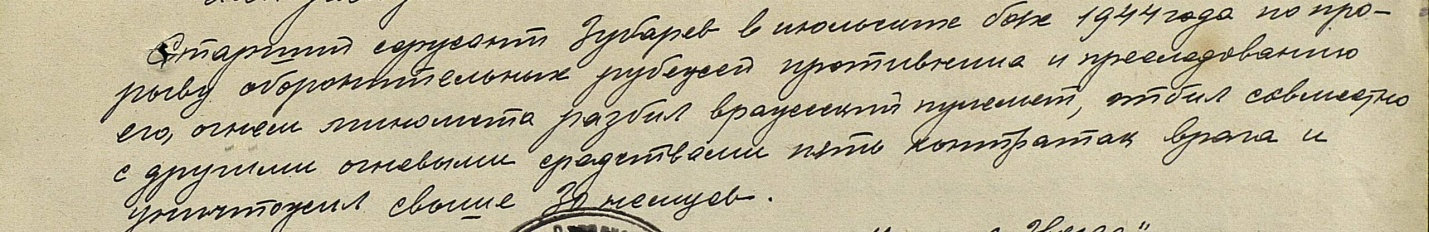 Старший сержант Зубарев в июльских боях 1944 года по про-
рыву оборонительных рубежей противника и преследованию
его, огнем миномета разбил вражеский пулемет, отбил совместно
с другими огневыми средствами пять контратак врага и
уничтожил свыше 30 немцев.